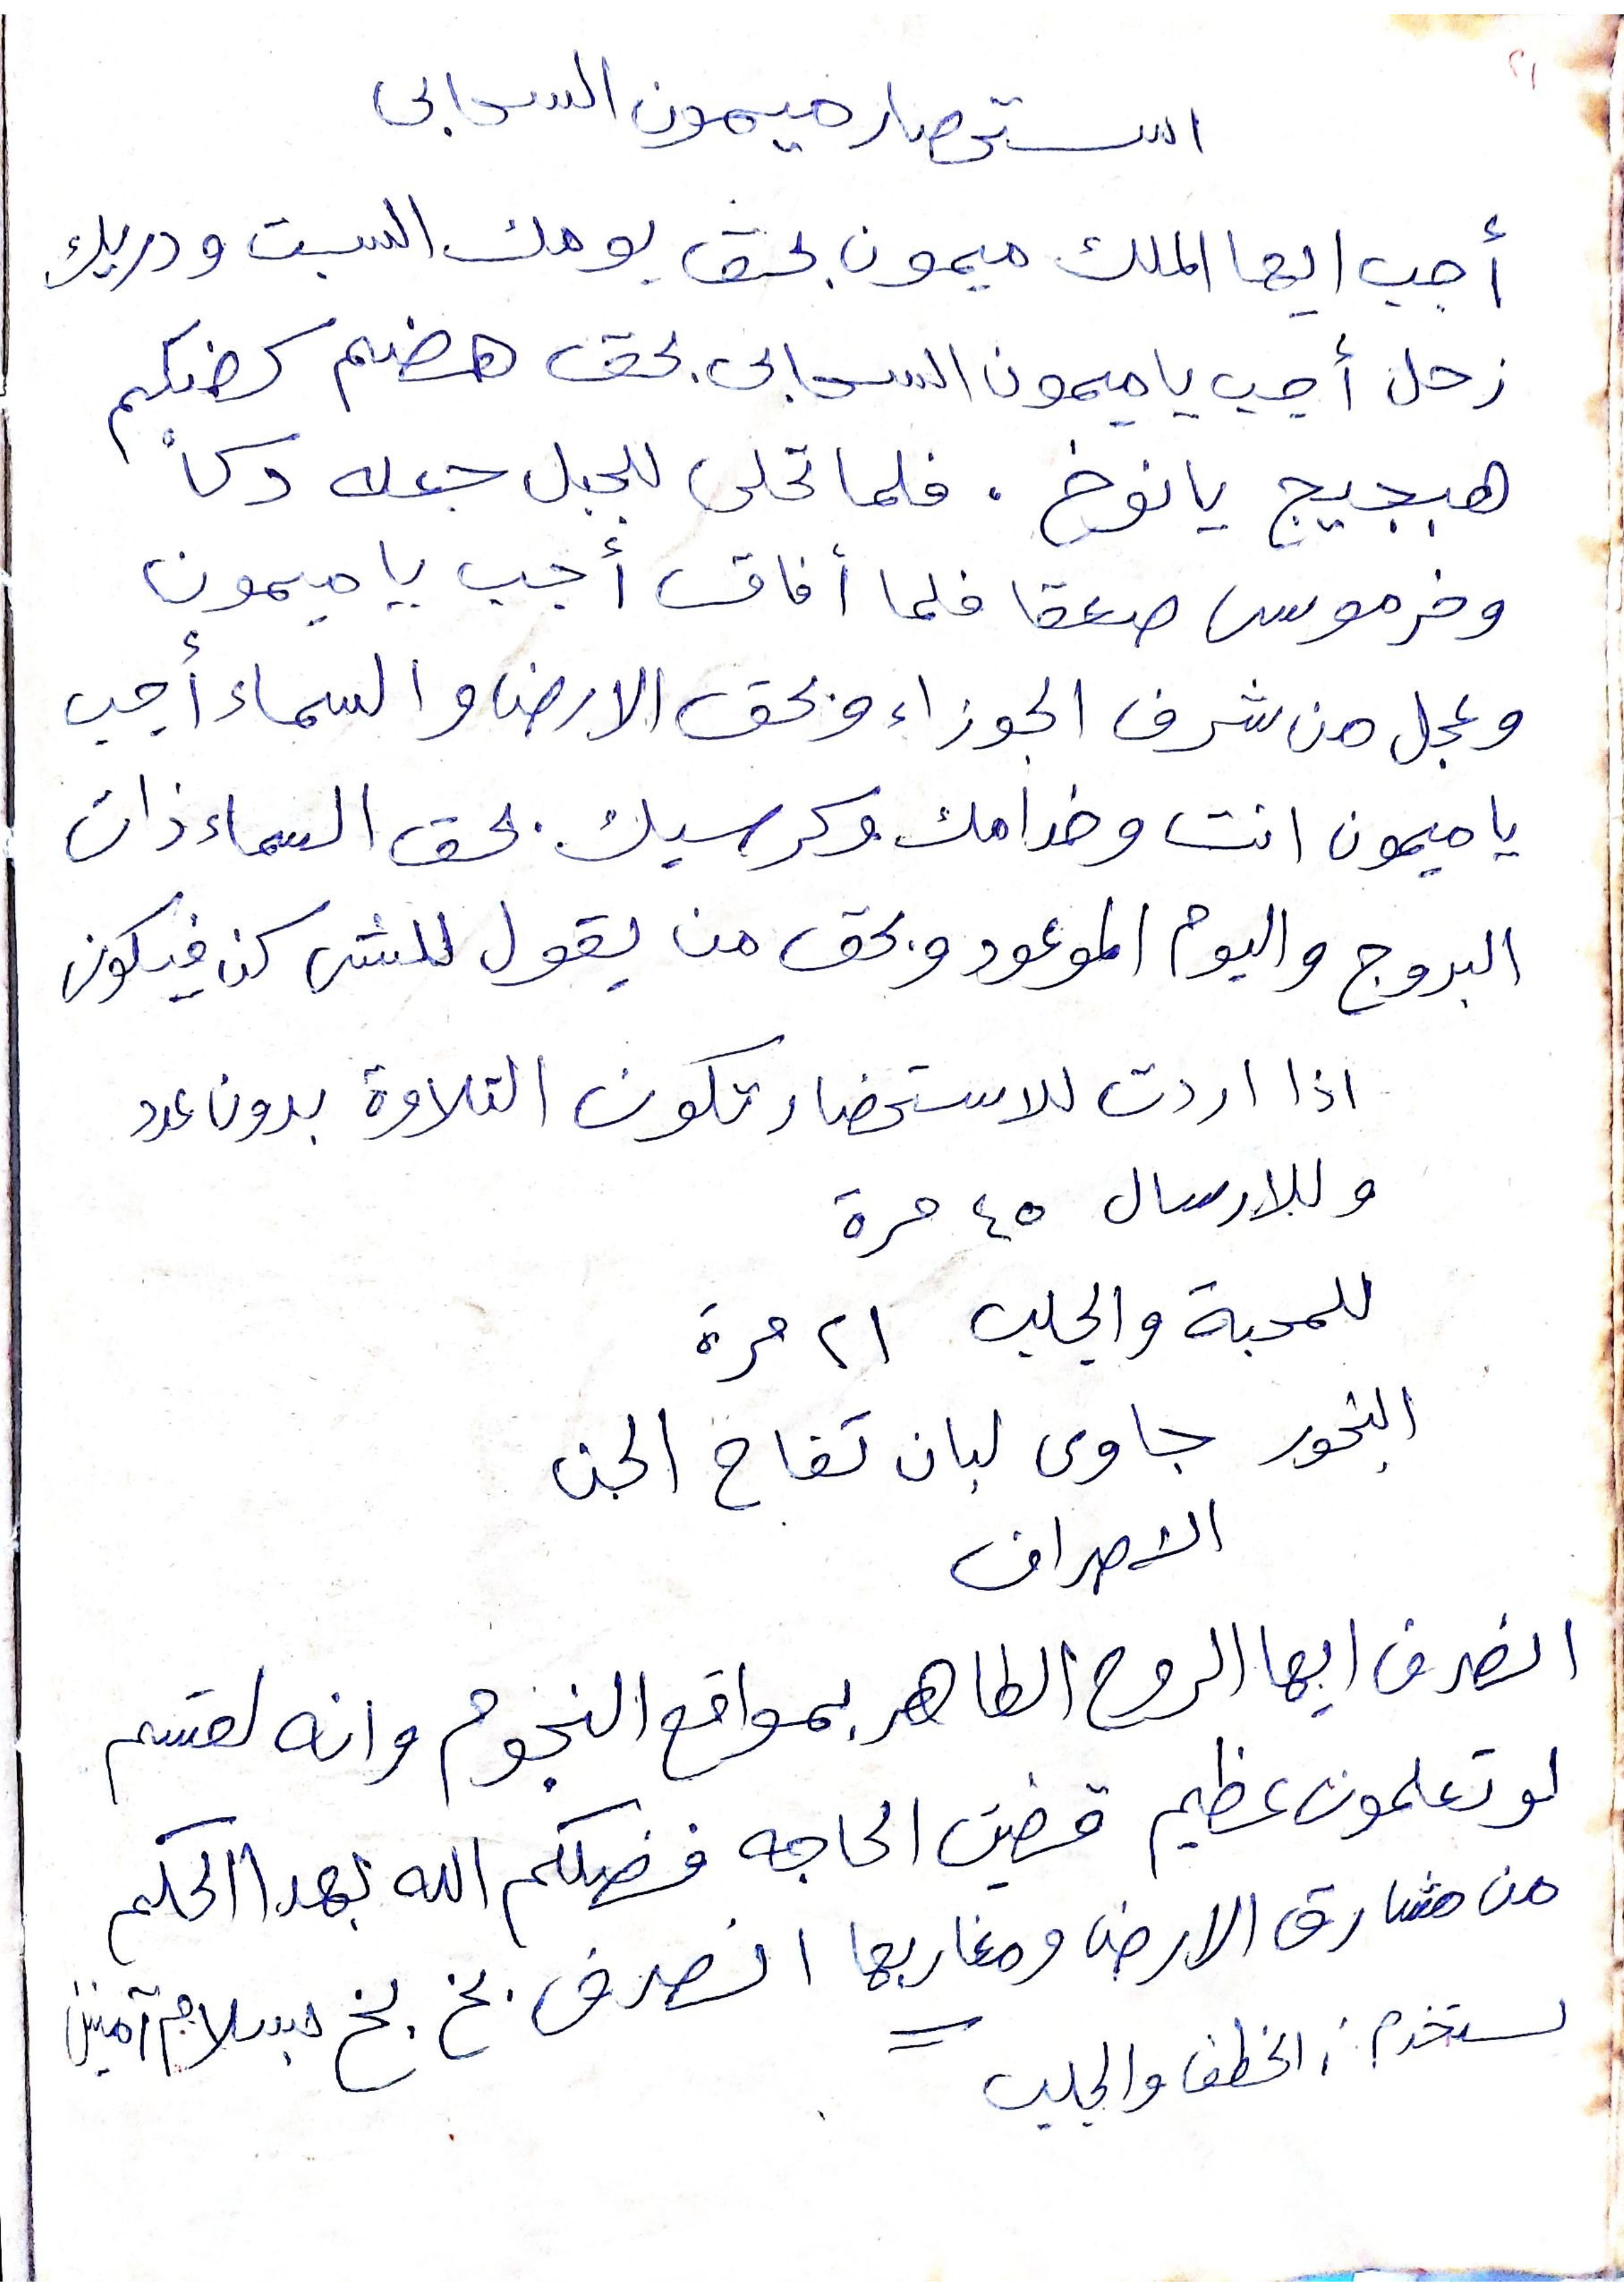 ٢١
استحضار ميمون السحابى
أجب ايها الملك ميمون بحق يومك السبت ودريك
زحل أجب ياميمون السحابى بحق هضم كرضكم
هبجيج يانوخ . فلما تجلى للجبل جعله دكاً
وخر موسى صعقا فلما أفاق أجب يا ميمون
وعجل من شرف الجوزاء وبحق الارض والسماء أجب
ياميمون انت وخدامك وكرسيك بحق السماء ذات
البروج واليوم الموعود وبحق من يقول للشى كن فيكون
اذا اردت للاستحضار تكون التلاوة بدون عدد
وللارسال ٤٥ مرة
للمحبة والجلب ٢١ مرة
البخور جاوى لبان تفاح الجن
الاصراف
انصرف ايها الروح الطاهر بمواقع النجوم وانه لقسم
لو تعلمون عظيم قضيت الحاجه فضلكم الله بهدا الحكم
من مشارق الارض ومغاربها انصرف بخ بخ بسلام آمنين
تستخدم : الخطف والجلب